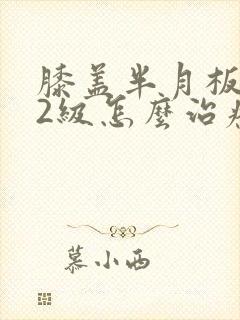 膝盖半月板
2級怎麼治疗
慕小西